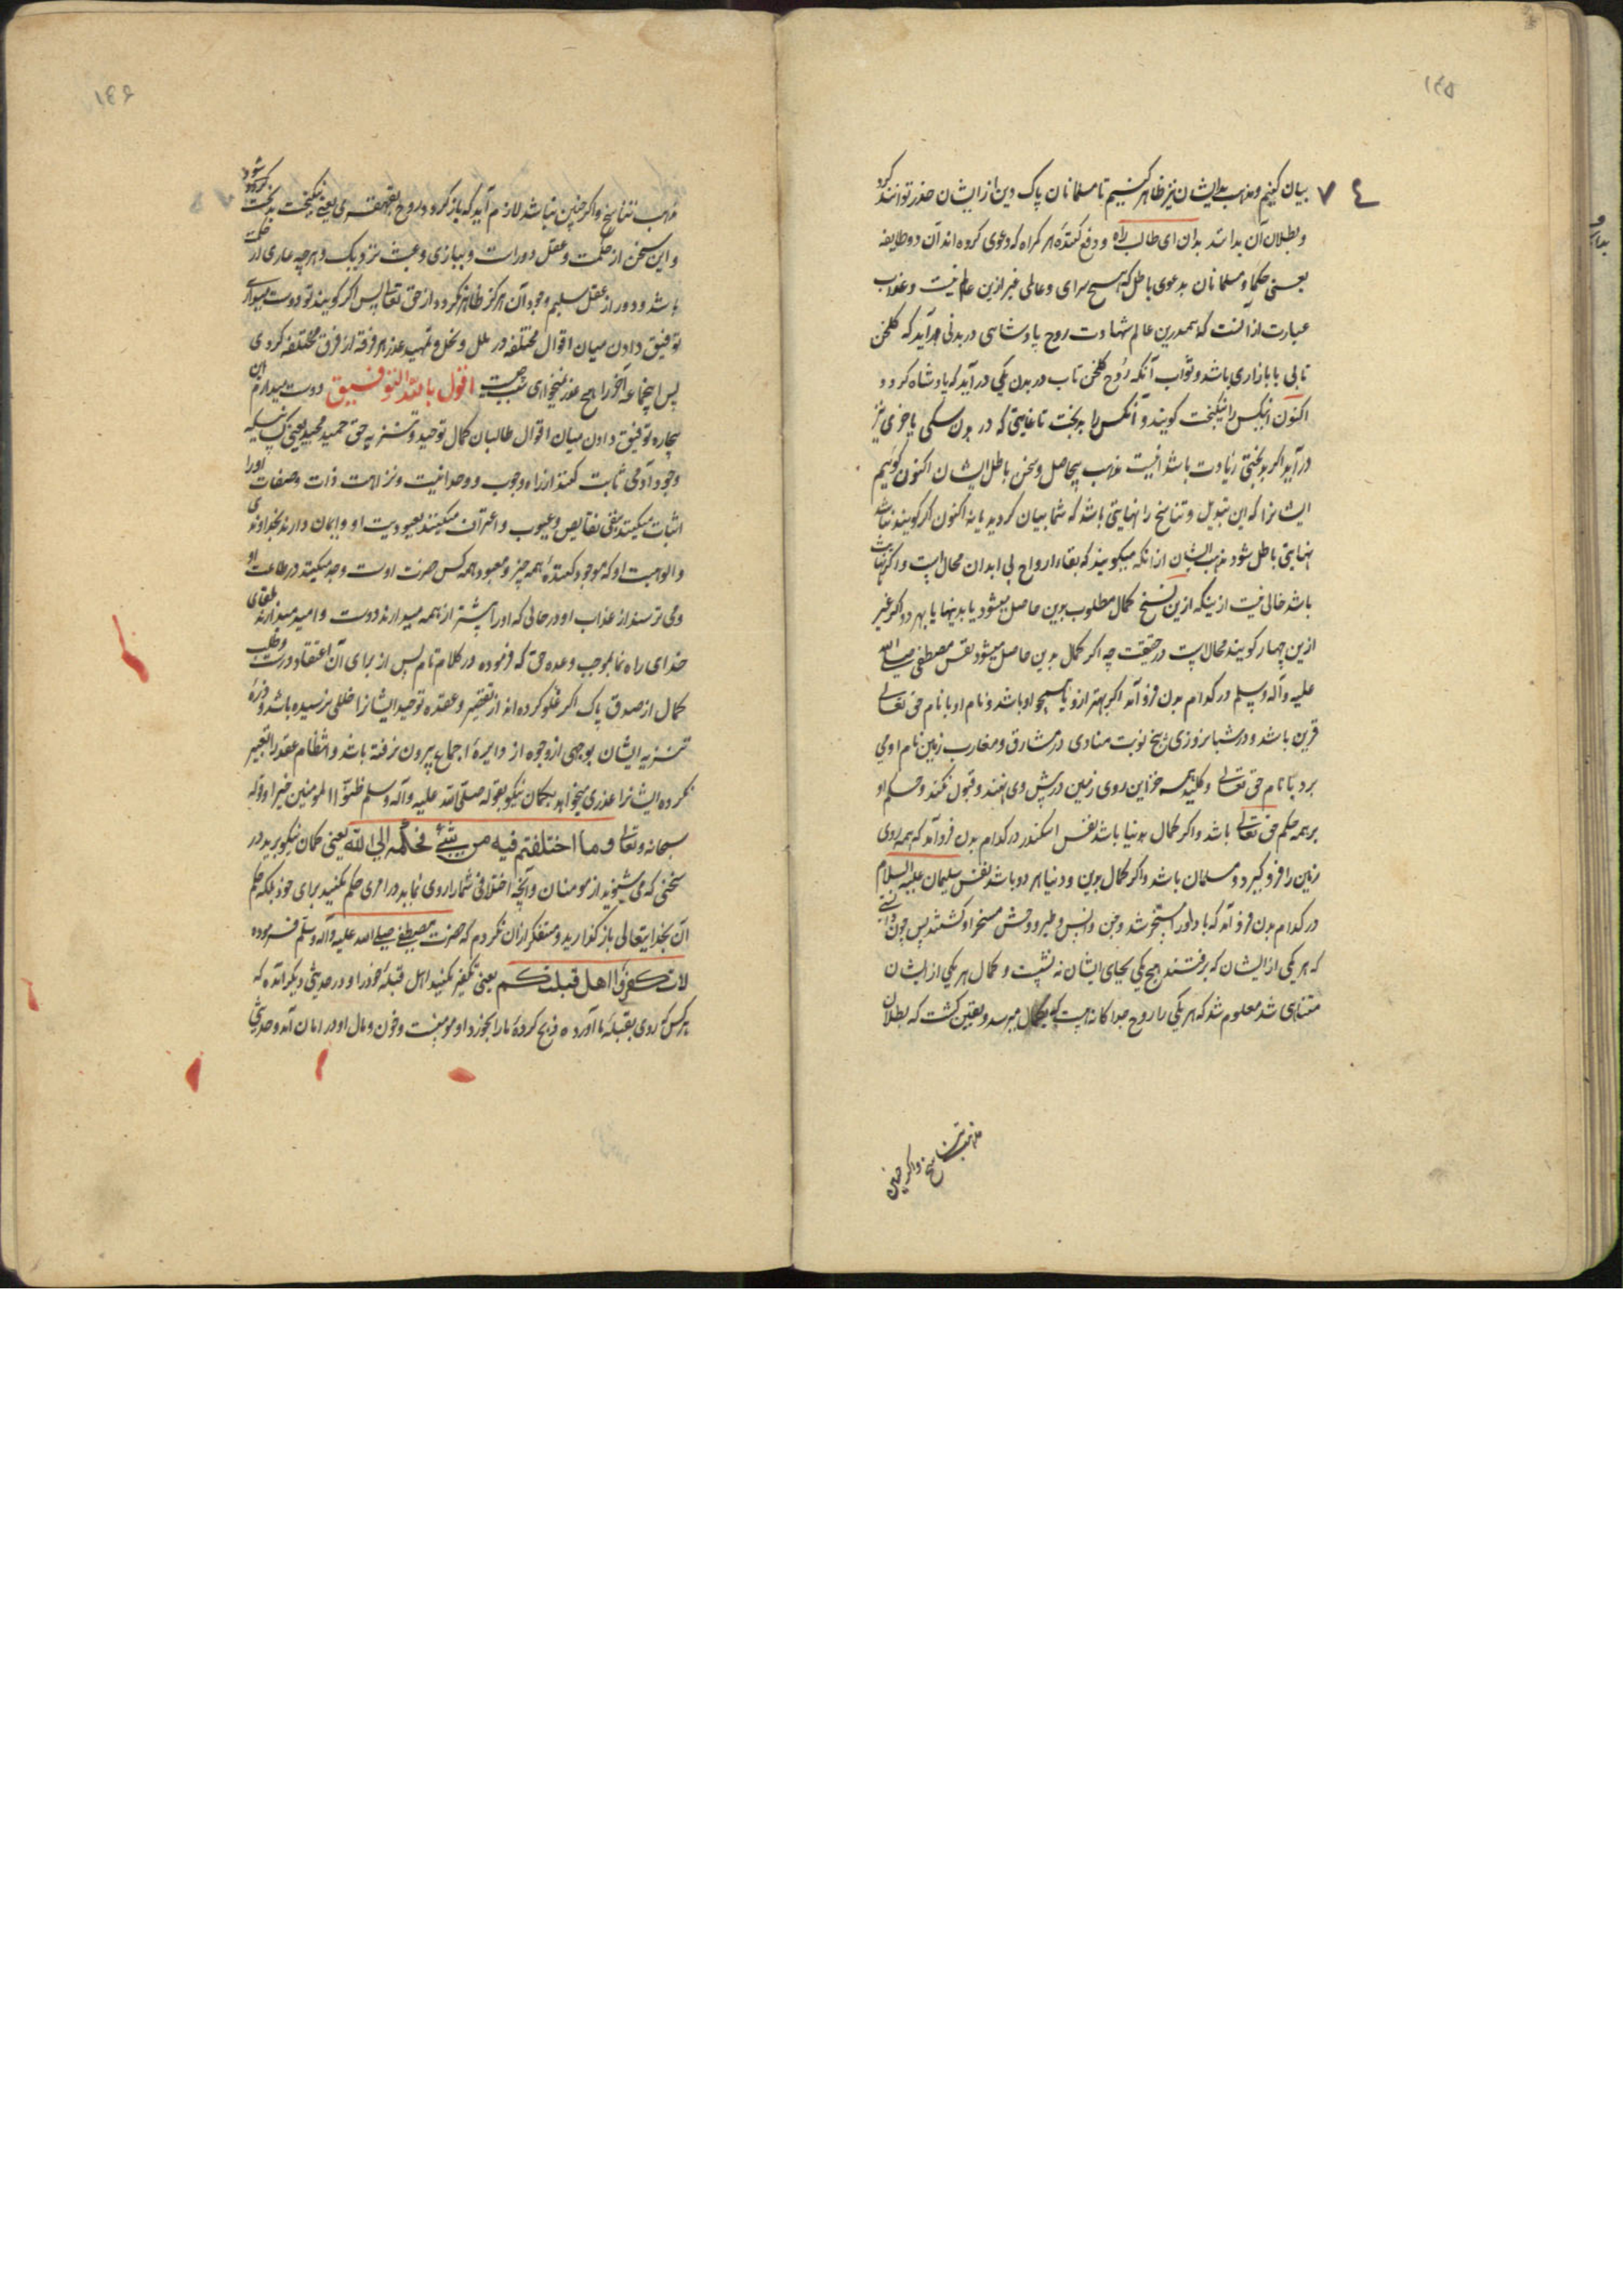 ۱۴۵
۷۴
بیان کنیم و مذهب بد ایشان نیز ظاهر کنیم تا مسلمانان پاک دین از ایشان حذر توانند کرد
و بطلان آن بدانند بدان ای طالب راه و دفع کنندهٔ هر گمراه که دعوی کرده اند آن دو طایفه
یعنی حکما و مسلمانان بدعوی باطل که هیچ سرای و عالمی غیر ازین عالم نیست و عذاب
عبارت از آنست که همدرین عالم شهادت روح پادشاهی در بدنی درآید که گلخن
تابی یا بازاری باشد و ثواب آنکه روح گلخن تاب در بدن یکی درآید که پادشاه گردد
اکنون این کس را نیکبخت گویند و آنکس را بدبخت تا غایتی که در بدن سگی یا خری نیز
درآید اگر بدبختی زیادت باشد اینست مذهب بیحاصل و سخن باطل ایشان اکنون گوئیم
ایشانرا که این تبدیل و تناسخ را نهایتی باشد که شما بیان کردید یا نه اکنون اگر گویند نباشد
نهایتی باطل شود مذهب ایشان از آنکه میگویند که بقاء ارواح بی ابدان محال است و اگر نهایت
باشد خالی نیست ازینکه ازین نسخ کمال مطلوب بدین حاصل میشود یا بدینها یا بهر دو اگر غیر
ازین چهار گویند محال است در حقیقت چه اگر کمال بدین حاصل میشود نفس مصطفی صلی الله
علیه و آله و سلم در کدام بدن فرو آمد اگر بهتر ازو یا همچو او باشد و نام او با نام حق تعالی
قرین باشد و در شبانروزی پنج نوبت منادی در مشارق و مغارب زمین نام او می
برد با نام حق تعالی و کلید همه خزاین روی زمین در پیش وی نهند و قبول نکند و حکم او
بر همه حکم حق تعالی باشد و اگر کمال بدنیا باشد نفس اسکندر در کدام بدن فرو آمد که همه روی
زمین را فرو گیرد و مسلمان باشد و اگر کمال بدین و دنیا هر دو باشد نفس سلیمان علیه السلام
در کدام بدن فرو آمد که باد او را مسخر شد و جن و انس و طیر و وحش مسخر او گشتند پس چون دانستی
که هر یکی از ایشان که برفتند هیچ یکی بجای ایشان ننشست و کمال هر یکی از ایشان
متناهی شد معلوم شد که هر یکی را روح جداگانه است که بکمال میرسد و یقین گشت که بطلان
مذهب تناسخ و اگر چنین
۱۴۶
مذهب تناسخ و اگر چنین نباشد لازم آید که باز گردد روح بقهقری یعنی نیکبخت بدبخت گردد شود
و این سخن از حکمت و عقل دورست و ببازی و عبث نزدیک و هرچه عاری از حکمت
باشد و دور از عقل سلیم وجود آن هرگز ظاهر نگردد از حق تعالی پس اگر گویند تو دوست میداری
توفیق دادن میان اقوال مختلفه در ملل و نحل و تمهید عذر هر فرقه از فرق مختلفه کردی
پس اینجماعه آخر را هیچ عذر نمیخواهی سبب چیست اقول بالله التوفیق دوست میدارم این
بیچاره توفیق دادن میان اقوال طالبان کمال توحید و تنزیه حق حمید مجید یعنی کسانیکه
وجود آدمی ثابت کنند از راه وجوب و وحدانیت و نزاهت ذات و صفات او را
اثبات میکنند بنفی نقایص و عیوب و اعتراف میکنند بعبودیت او و ایمان دارند بخداوندی
و الوهیت او که موجود کنندهٔ همه چیز و معبود همه کس حضرت اوست و جهد میکنند در طاعت او
و می ترسند از عذاب او در حالی که او را پیشتر از همه میدارند دوست و امید میدارند بلقای
خدای راه نما بموجب وعده حق که فرموده در کلام تام پس از برای آن اعتقاد درست و طلب
کمال از صدق پاک اگر غلو کرده اند از تقصیر و عقده توحید ایشانرا خللی نرسیده باشد و ذرهٔ
تنزیه ایشان بوجهی از وجوه از دایرهٔ اجماع بیرون نرفته باشد و انتظام عقد را تغییر
نکرده ایشانرا عذری میخواهد بگمان نیکو بقوله صلی الله علیه و آله و سلم ظنوا المومنین خیرا و قوله
سبحانه و تعالی وما اختلفتم فیه من شئ فحکمه الی الله یعنی گمان نیکو برید در
سخنی که می شنوید از مومنان و آنچه اختلافی شما را روی نماید در امری حکم مکنید برای خود بلکه حکم
آن بخدایتعالی باز گذارید و متفکر از آن نگردم که حضرت مصطفی صلی الله علیه و آله و سلم فرموده
لا تکفروا اهل قبلتکم یعنی تکفیر مکنید اهل قبلهٔ خود را و در حدیثی دیگر آمده که
هر کس که روی بقبلهٔ ما آورد و ذبح کردهٔ ما را بخورد او مومنست و خون و مال او در امان آمد و حدیثی